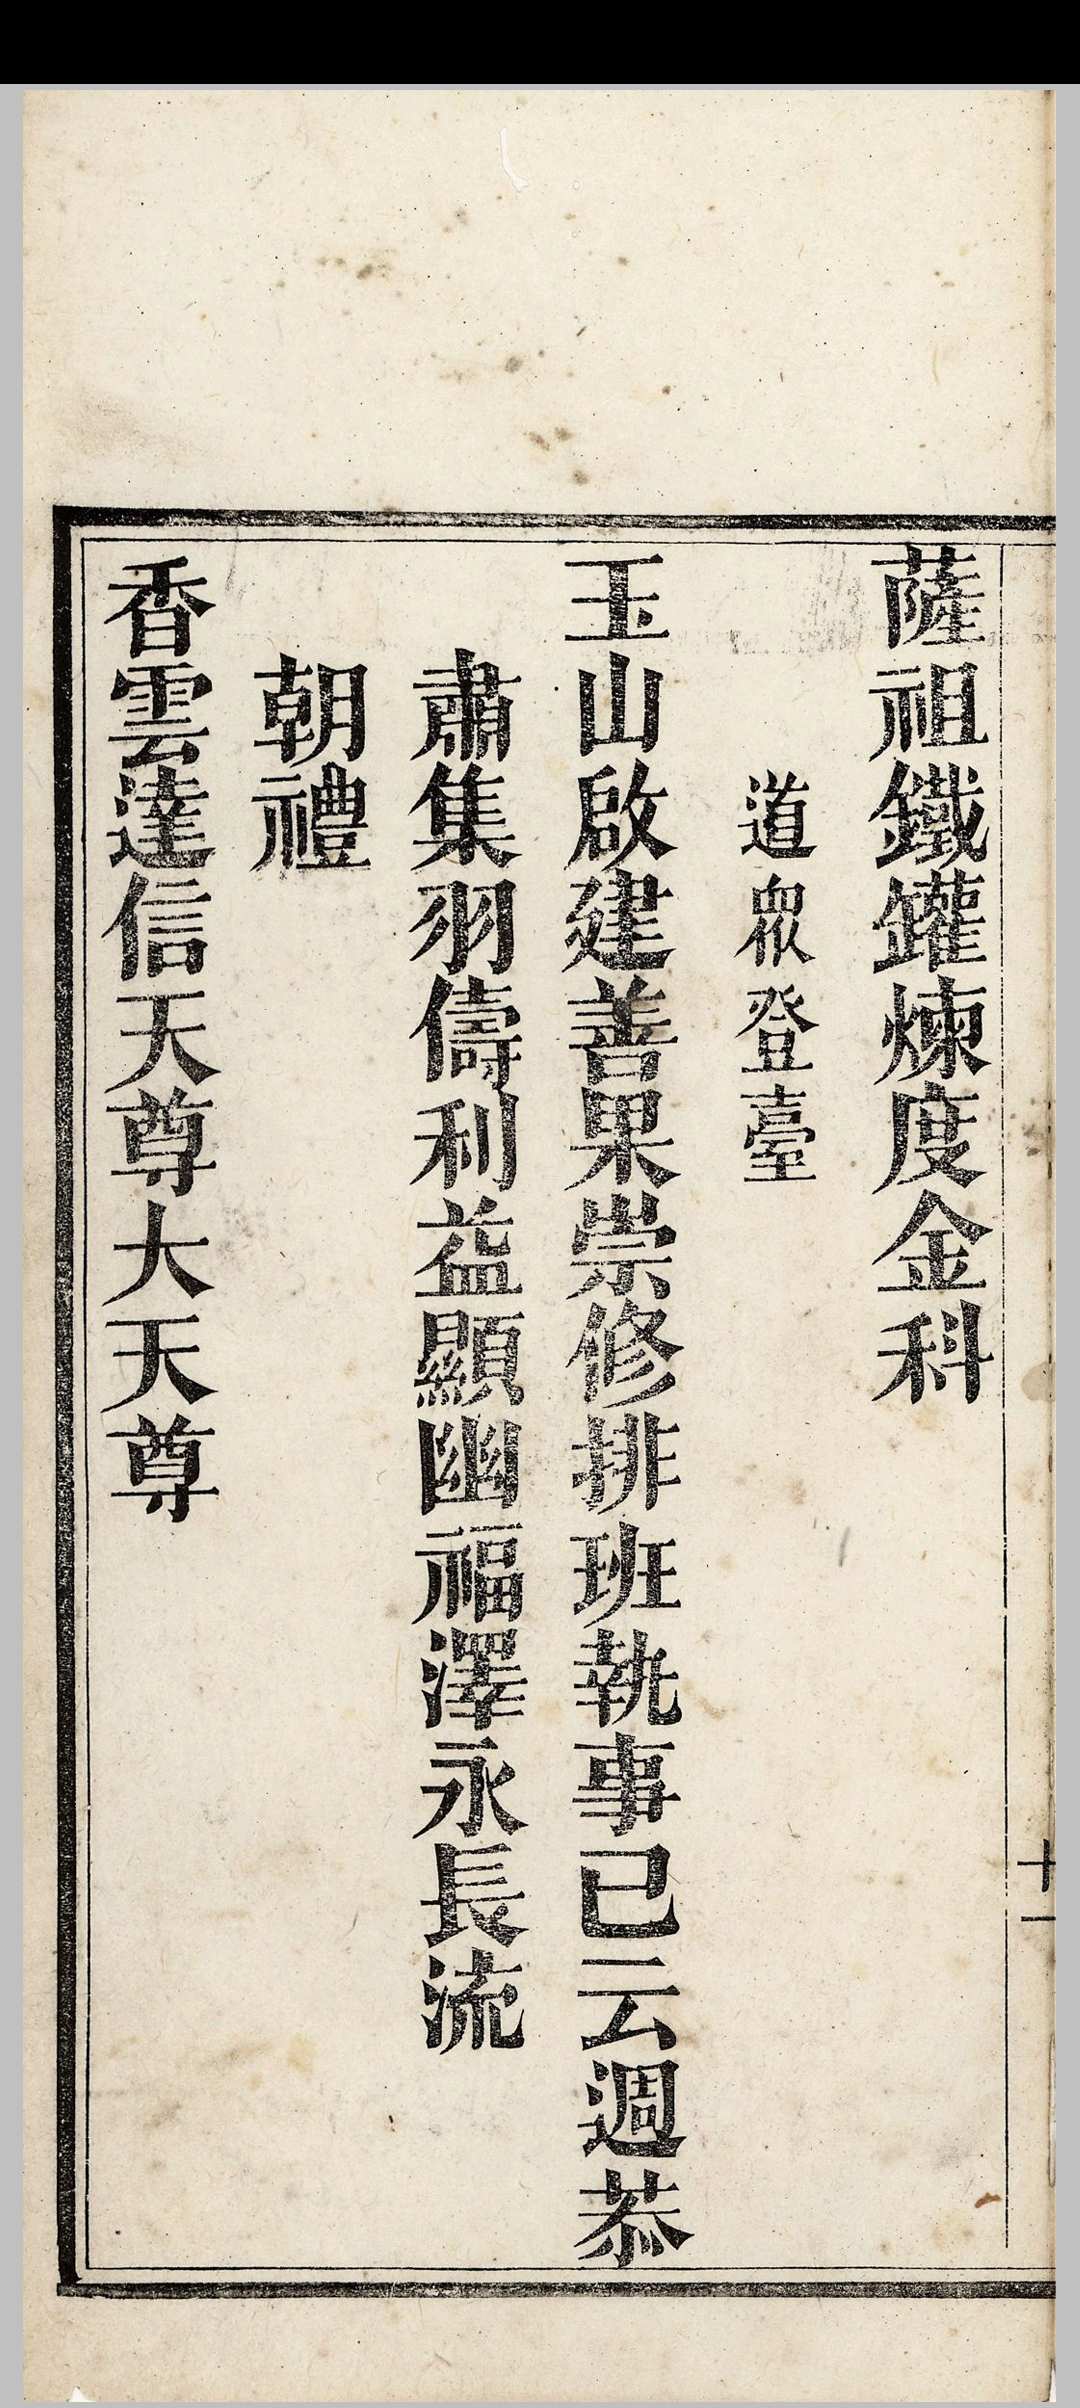 十一
薩祖鐵鑵煉度金科
道眾登臺
玉山啟建善果崇修排班執事已云週恭
肅集羽儔利益顯幽福澤永長流
朝禮
香雲達信天尊大天尊